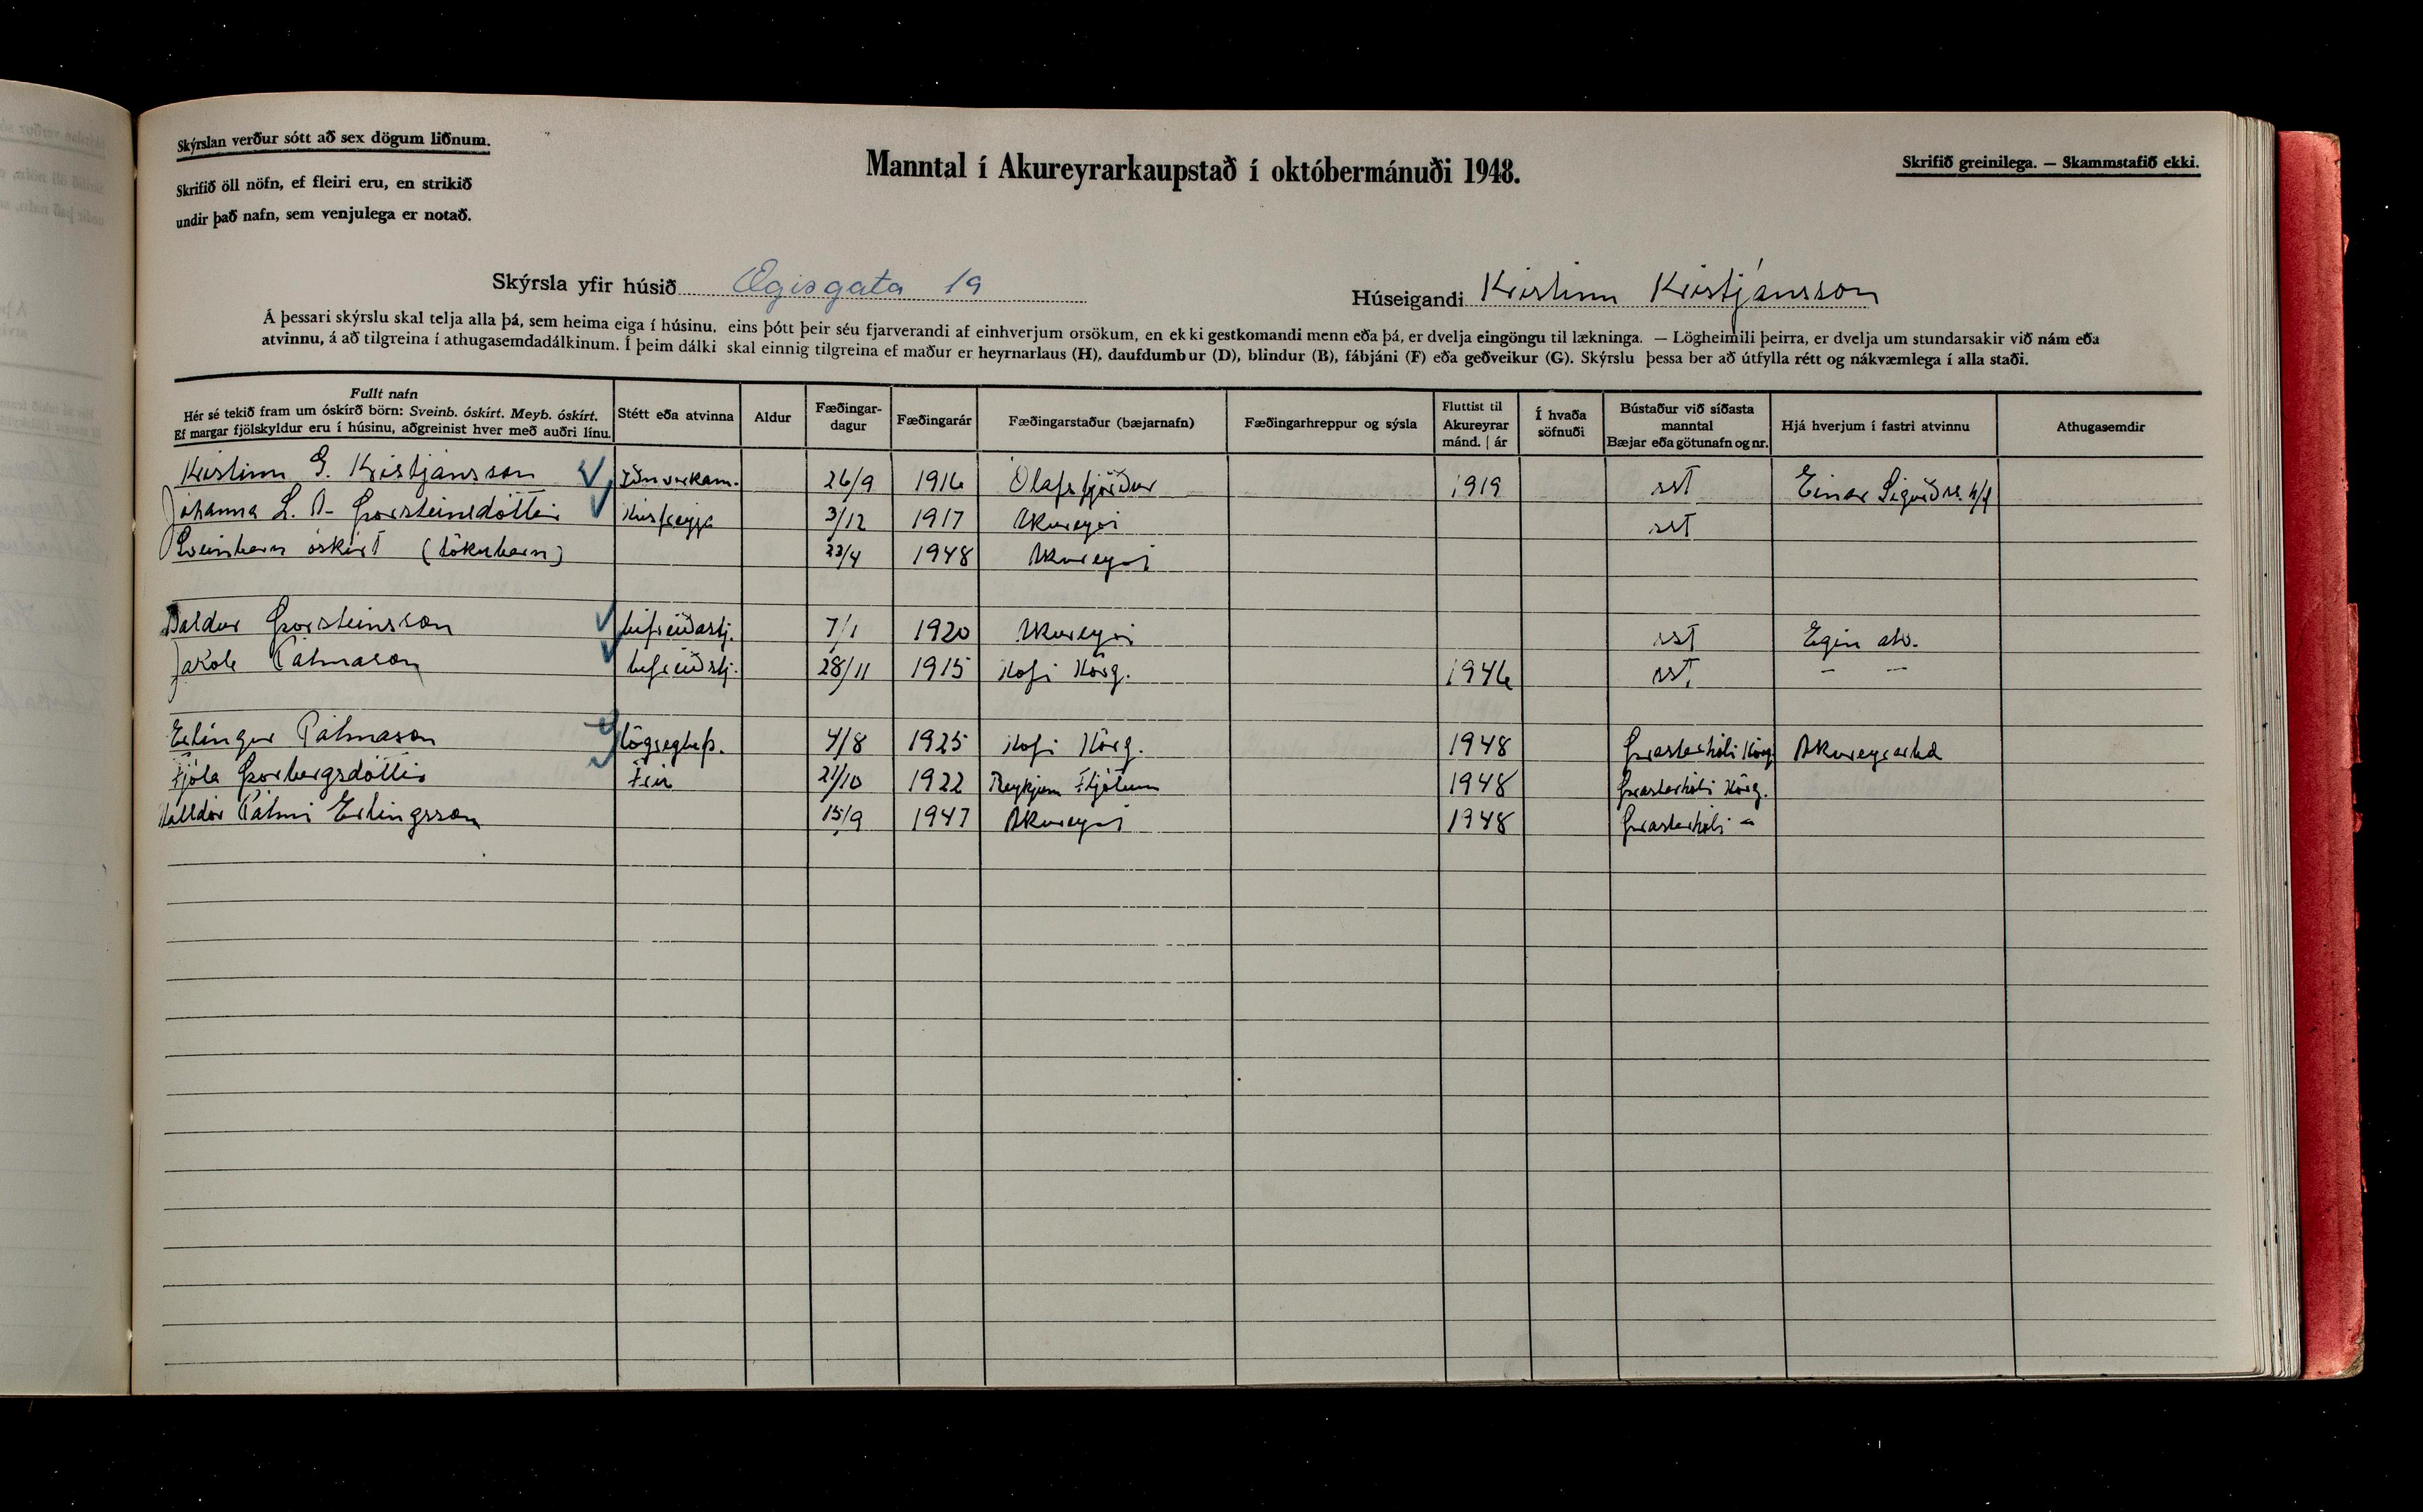 Skýrslan verður sótt að sex dögum liðnum.
Skrifið öll nöfn, ef fleiri eru, en strikið
undir það nafn, sem venjulega er notað.
Manntal í Akureyrarkaupstað í októbermánuði 1948.
Skrifið greinilega. — Skammstafið ekki.
Skýrsla yfir húsið Ægisgata 19
Húseigandi Kristinn Kristjánsson
Á þessari skýrslu skal telja alla þá, sem heima eiga í húsinu, eins þótt þeir séu fjarverandi af einhverjum orsökum, en ekki gestkomandi menn eða þá, er dvelja eingöngu til lækninga. — Lögheimili þeirra, er dvelja um stundarsakir við nám eða
atvinnu, á að tilgreina í athugasemdadálkinum. Í þeim dálki skal einnig tilgreina ef maður er heyrnarlaus (H), daufdumbur (D), blindur (B), fábjáni (F) eða geðveikur (G). Skýrslu þessa ber að útfylla rétt og nákvæmlega í alla staði.
Fullt nafn
Hér sé tekið fram um óskírð börn: Sveinb. óskírt. Meyb. óskírt.
Ef margar fjölskyldur eru í húsinu, aðgreinist hver með auðri línu.
Stétt eða atvinna
Aldur
Fæðingar-
dagur
Fæðingarár
Fæðingarstaður (bæjarnafn)
Fæðingarhreppur og sýsla
Fluttist til
Akureyrar
mánd. | ár
Í hvaða
söfnuði
Bústaður við síðasta
manntal
Bæjar eða götunafn og nr.
Hjá hverjum í fastri atvinnu
Athugasemdir
Kristinn G. Kristjánsson Iðnverkam. 26/9 1916 Ólafsfjörður 1919 sst Einar Sigurðss. h/f
Jóhanna L. A. Þorsteinsdóttir Húsfreyja 3/12 1917 Akureyri sst
Sveinbarn óskírt (tökubarn) 22/4 1948 Akureyri
Baldur Þorsteinsson bifreiðastj. 7/1 1920 Akureyri sst Egin atv.
Jakob Pálmason bifreiðstj. 28/11 1915 Hofi Hörg. 1946 sst. — —
Erlingur Pálmason lögregluþ. 4/8 1925 Hofi Hörg. 1948 Þrastarhóli Hörg Akureyrarbæ
Fjóla Þorbergsdóttir Frú 21/10 1922 Reykjum Fljótum 1948 Þrastarhóli Hörg.
Halldór Pálmi Erlingsson 15/9 1947 Akureyri 1948 Þrastarhóli —